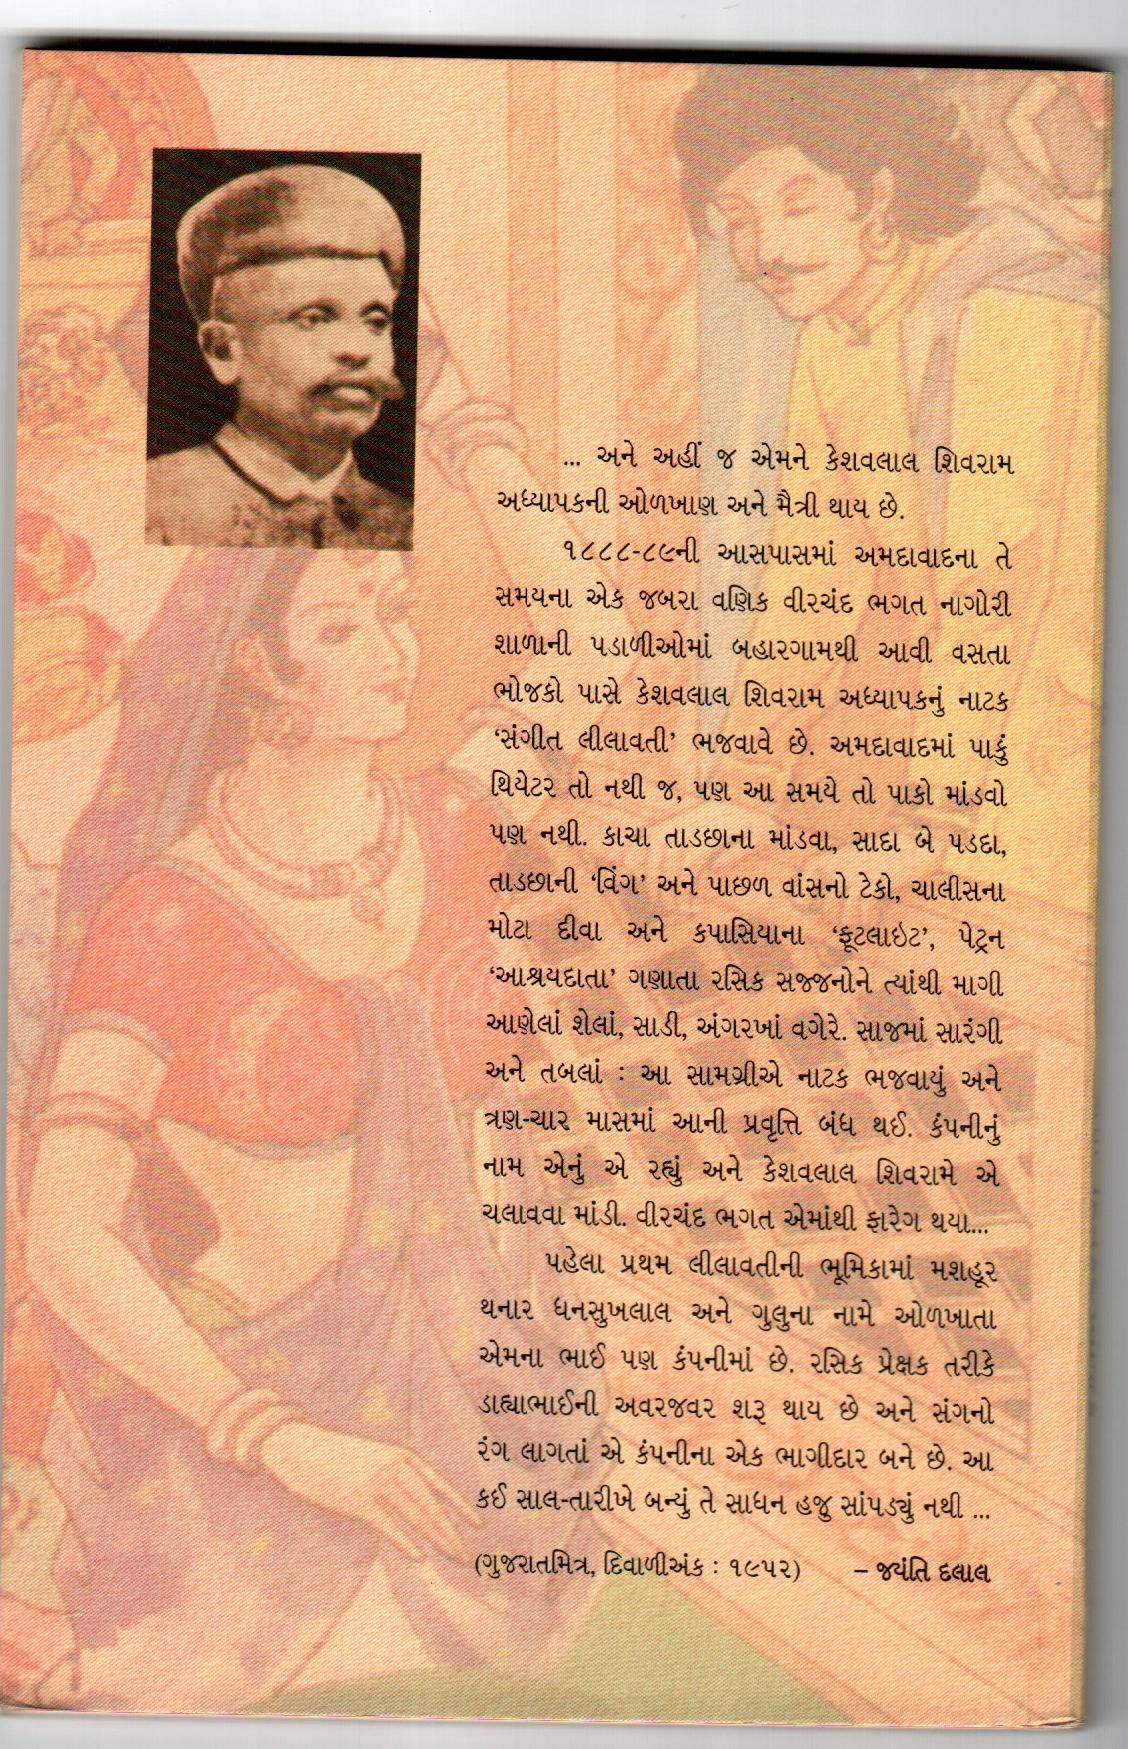 ... અને અહીં જ એમને કેશવલાલ શિવરામ
અધ્યાપકની ઓળખાણ અને મૈત્રી થાય છે.
૧૮૮૮-૮૯ની આસપાસમાં અમદાવાદના તે
સમયના એક જબરા વણિક વીરચંદ ભગત નાગોરી
શાળાની પડાળીઓમાં બહારગામથી આવી વસતા
ભોજકો પાસે કેશવલાલ શિવરામ અધ્યાપકનું નાટક
‘સંગીત લીલાવતી’ ભજવાવે છે. અમદાવાદમાં પાકું
થિયેટર તો નથી જ, પણ આ સમયે તો પાકો માંડવો
પણ નથી. કાચા તાડછાના માંડવા, સાદા બે પડદા,
તાડછાની ‘વિંગ’ અને પાછળ વાંસનો ટેકો, ચાલીસના
મોટા દીવા અને કપાસિયાના ‘ફૂટલાઇટ’, પેટ્રન
‘આશ્રયદાતા’ ગણાતા રસિક સજ્જનોને ત્યાંથી માગી
આણેલાં શેલાં, સાડી, અંગરખાં વગેરે. સાજમાં સારંગી
અને તબલાં : આ સામગ્રીએ નાટક ભજવાયું અને
ત્રણ-ચાર માસમાં આની પ્રવૃત્તિ બંધ થઈ. કંપનીનું
નામ એનું એ રહ્યું અને કેશવલાલ શિવરામે એ
ચલાવવા માંડી. વીરચંદ ભગત એમાંથી ફારેગ થયા...
પહેલા પ્રથમ લીલાવતીની ભૂમિકામાં મશહૂર
થનાર ધનસુખલાલ અને ગુલુના નામે ઓળખાતા
એમના ભાઈ પણ કંપનીમાં છે. રસિક પ્રેક્ષક તરીકે
ડાહ્યાભાઈની અવરજવર શરૂ થાય છે અને સંગનો
રંગ લાગતાં એ કંપનીના એક ભાગીદાર બને છે. આ
કઈ સાલ-તારીખે બન્યું તે સાધન હજુ સાંપડ્યું નથી ...
(ગુજરાતમિત્ર, દિવાળીઅંક : ૧૯૫૨) – જયંતિ દલાલ